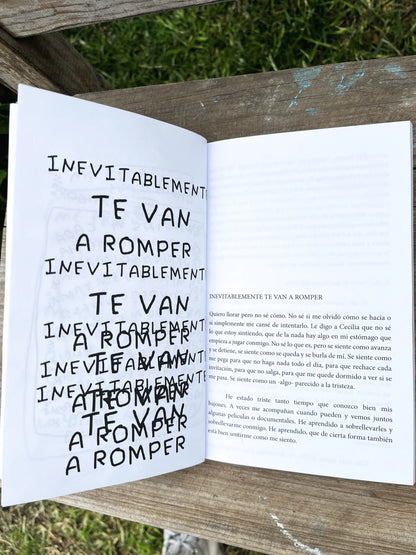 INEVITABLEMENTE
TE VAN
A ROMPER
INEVITABLEMENTE
TE VAN
INEVITABLEMENTE
A ROMPER
TE VAN
INEVITABLEMENTE
INEVITABLEMENTE
A ROMPER
TE VAN
A ROMPER
A ROMPER
INEVITABLEMENTE TE VAN A ROMPER
Quiero llorar pero no sé cómo. No sé si me olvidó cómo se hacía o
si simplemente me cansé de intentarlo. Le digo a Cecilia que no sé
lo que estoy sintiendo, que de la nada hay algo en mi estómago que
empieza a jugar conmigo. No sé lo que es, pero se siente como avanza
y se define, se siente como se queda y se burla de mí. Se siente como
me pega para que no haga nada todo el día, para que rechace cada
invitación, para que no salga, para que me quede dormido a ver si se
me pasa. Se siente como un -algo- parecido a la tristeza.
He estado triste tanto tiempo que conozco bien mis
bajones. A veces me acompañan cuando pueden y vemos juntos
algunas películas o documentales. He aprendido a sobrellevarles y
sobrellevarme conmigo. He aprendido, que de cierta forma también
está bien sentirme como me siento.